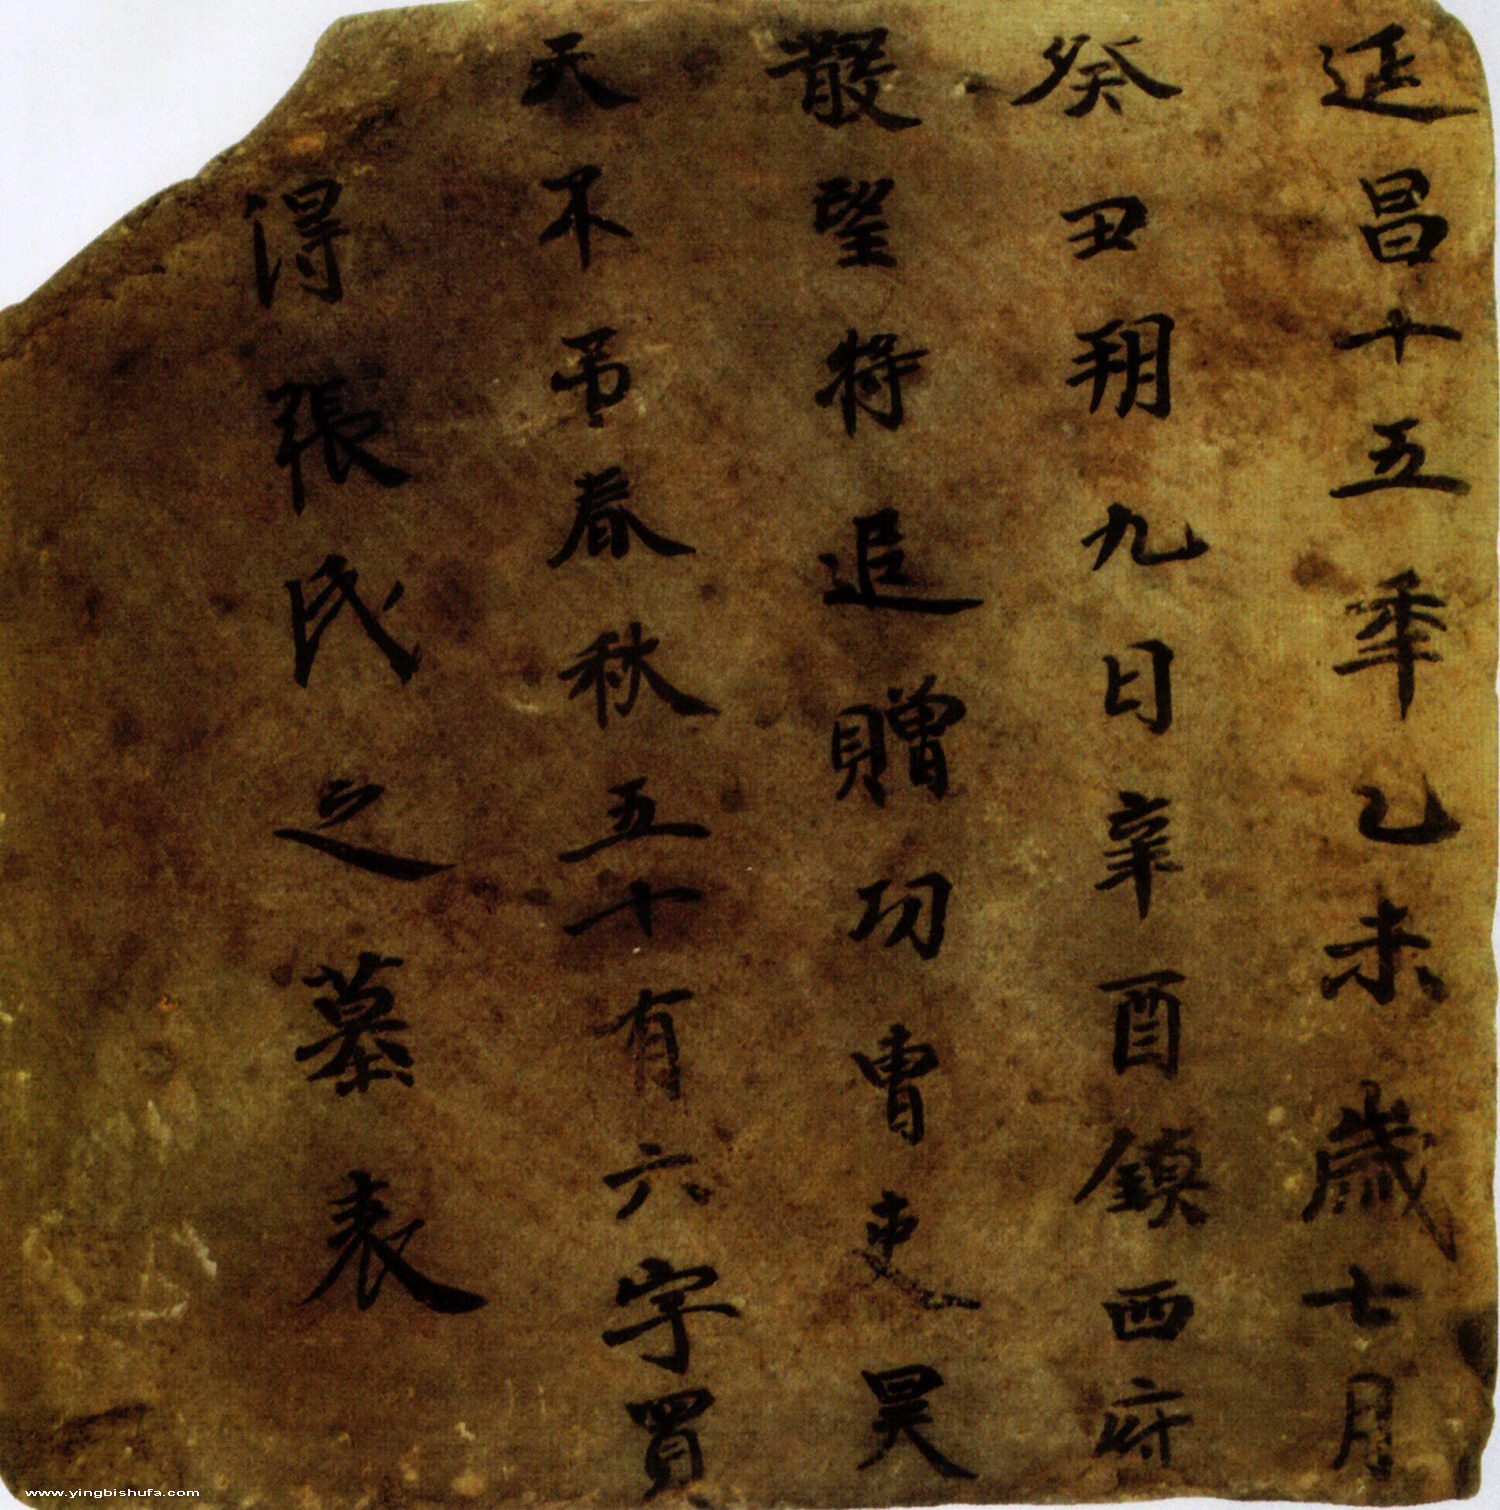 延昌十五年乙未歲七月
癸丑朔九日辛酉鎮西府
散望特追贈功曹吏昊
天不弔春秋五十有六字買
得張氏之墓表
www.yingbishufa.com